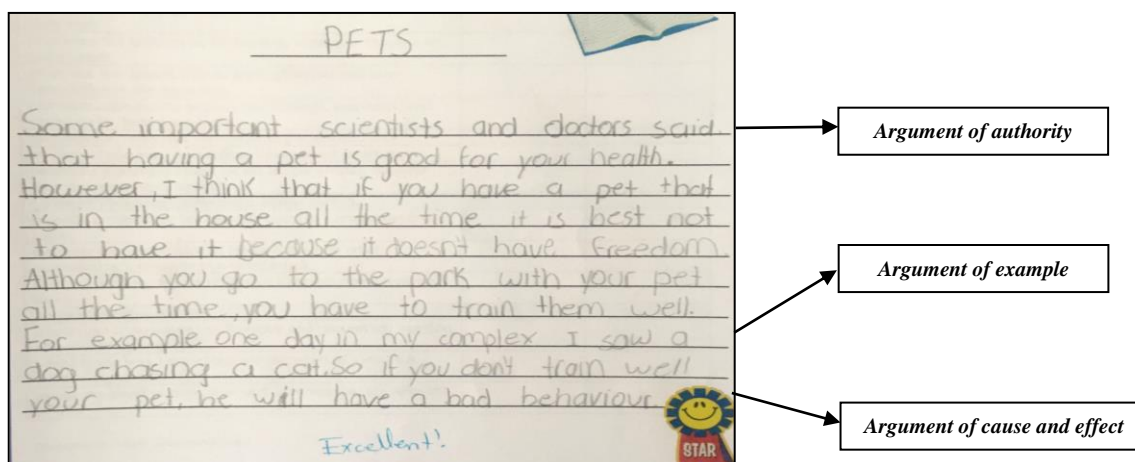 PETS
Some important scientists and doctors said
that having a pet is good for your health.
However, I think that if you have a pet that
is in the house all the time it is best not
to have it because it doesn't have freedom.
Although you go to the park with your pet
all the time, you have to train them well.
For example one day in my complex I saw a
dog chasing a cat. So if you don't train well
your pet, he will have a bad behaviour.
Excellent!
STAR
Argument of authority
Argument of example
Argument of cause and effect